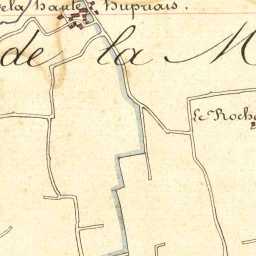 de la haute huprais.
de la M
Le Roche